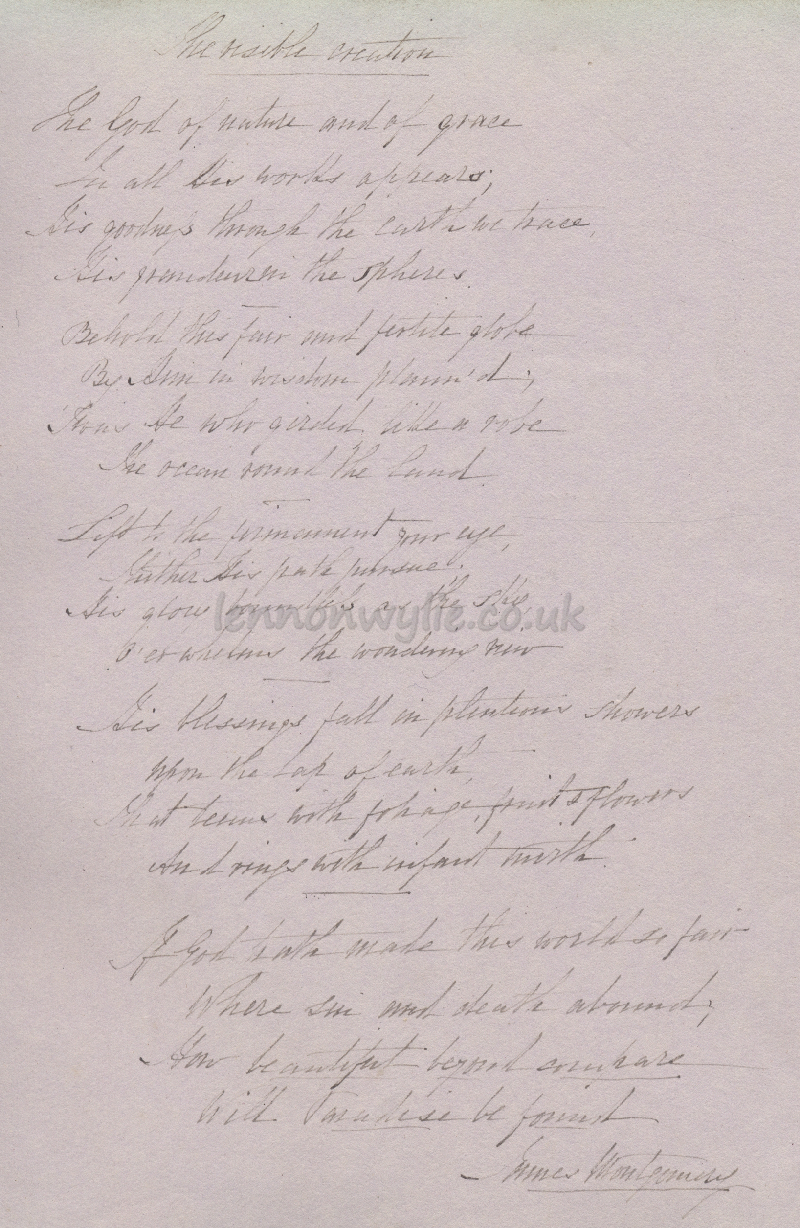 The visible creation
The God of nature and of grace
In all His works appears;
His goodness through the earth we trace,
His grandeur in the spheres.
Behold this fair and fertile globe
By Him in wisdom plann'd;
'Twas He who girded like a robe
The ocean round the land.
Lift to the firmament your eye,
Thither His path pursue.
His glory boundless as the sky
O'erwhelms the wondering view
His blessings fall in plenteous showers
upon the lap of earth,
That teems with foliage, fruits & flowers
And rings with infant mirth.
If God hath made this world so fair
Where sin and death abound;
How beautiful beyond compare
Will Paradise be found
James Montgomery
lennonwylie.co.uk